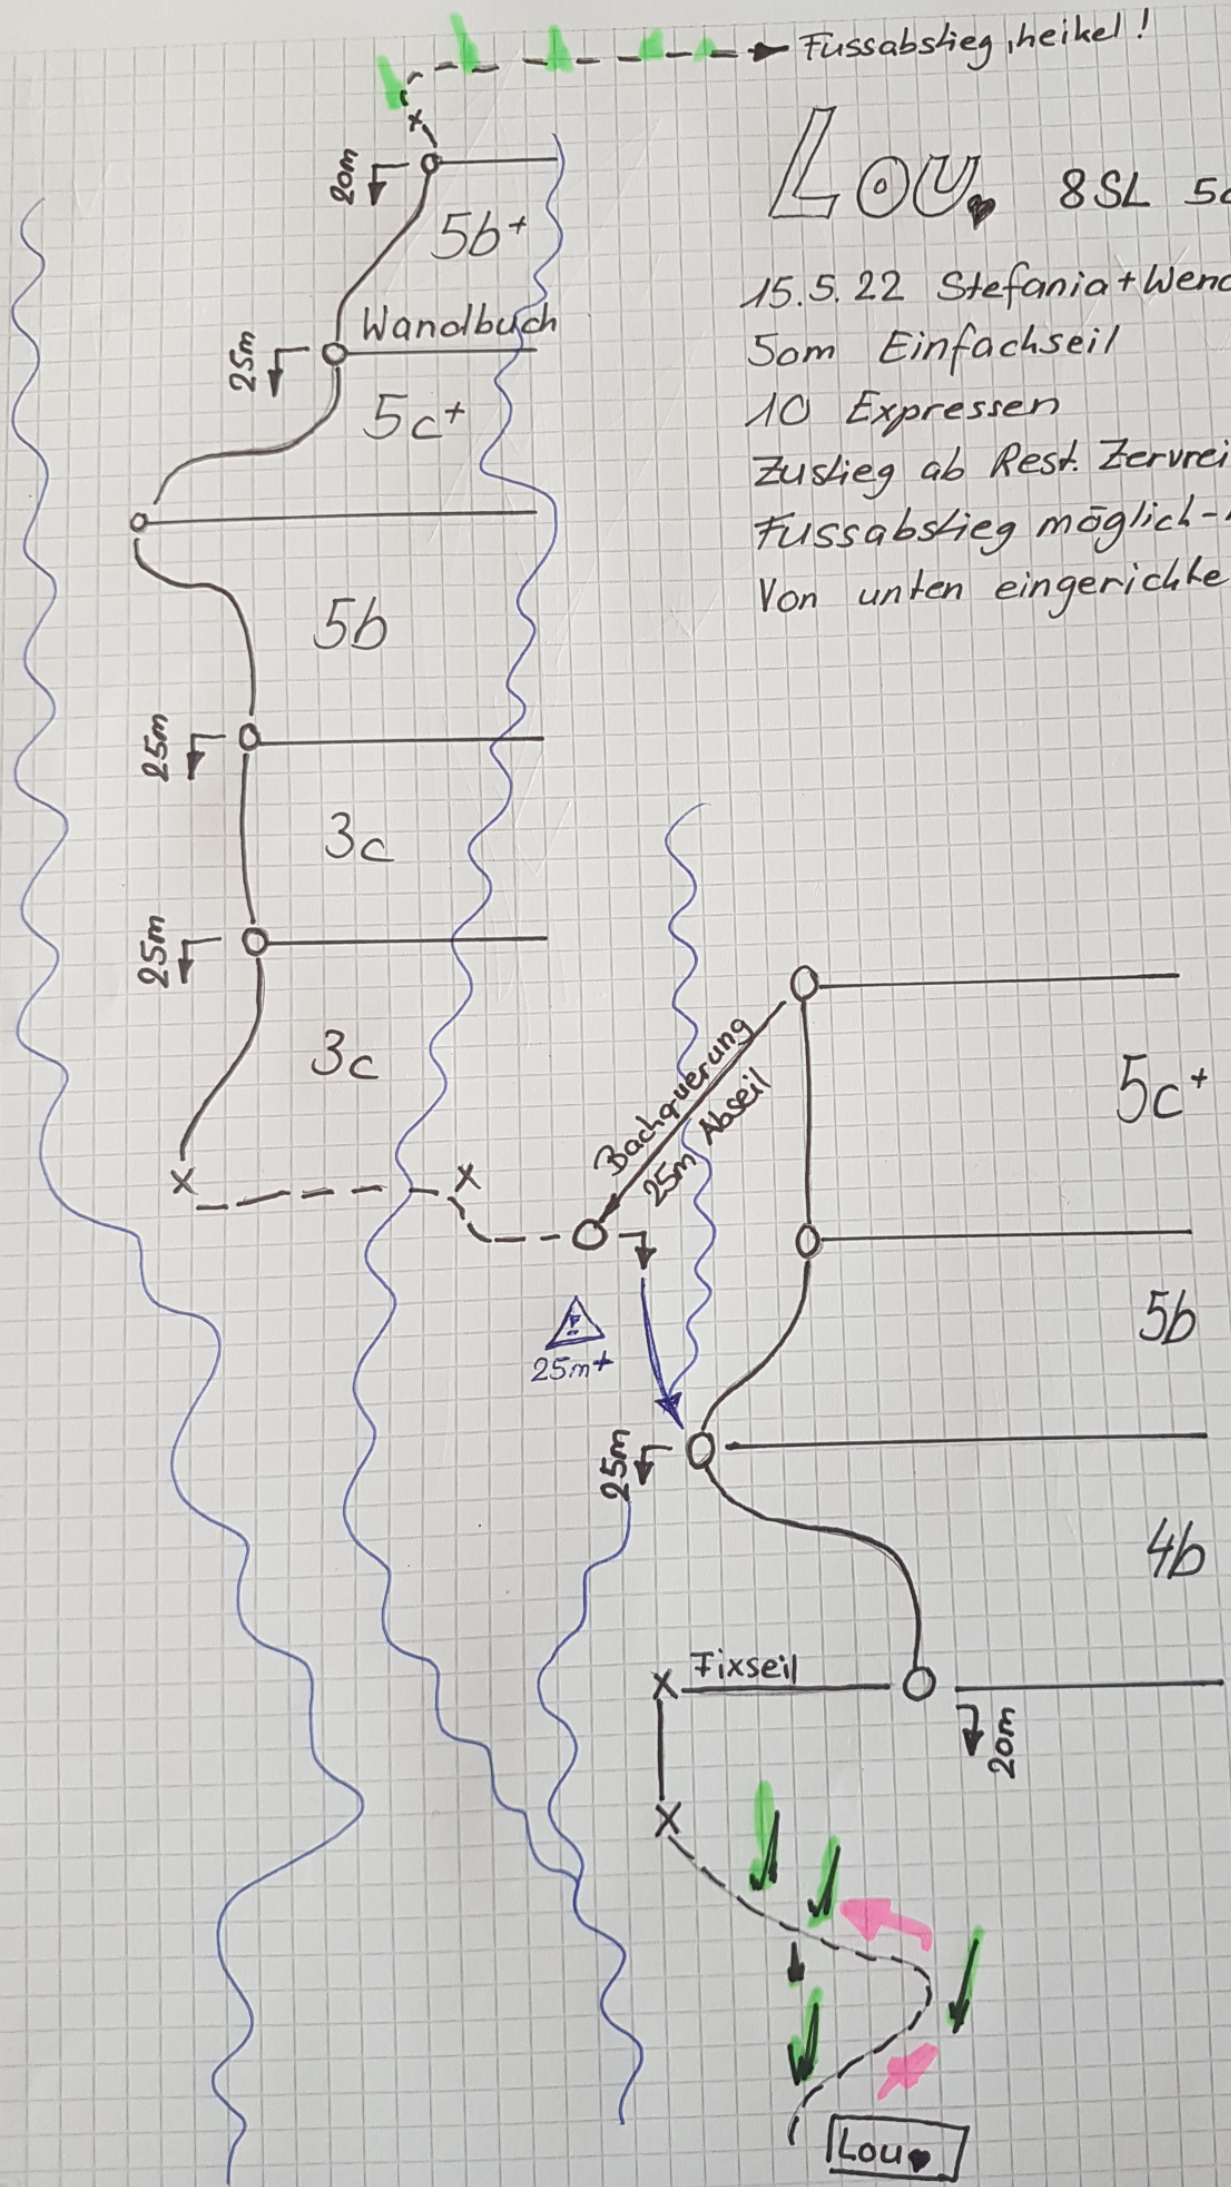 Fussabstieg, heikel!
Lou 8SL
15.5.22 Stefania +
50m Einfachseil
10 Expressen
Zustieg ab Rest.
Fussabstieg möglich-
Von unten
20m
5b+
Wandbuch
25m
5c+
5b
25m
3c
25m
3c
x
x
x
Bachquerung
25m Abseil
5c+
5b
!
25m+
25m
4b
x Fixseil
20m
x
Lou